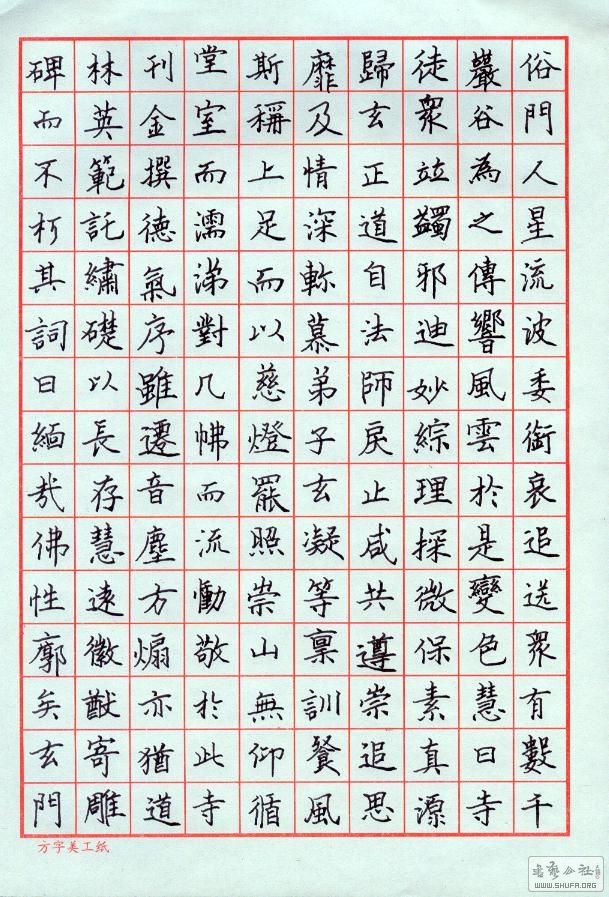 俗門人星流波委銜哀追送眾有數千
巖谷為之傳響風雲於是變色慧日寺
徒眾竝蠲邪迪妙綜理探微保素真源
歸玄正道自法師戾止咸共遵崇追思
靡及情深軫慕弟子玄凝等稟訓餐風
斯稱上足而以慈燈罷照崇山無仰循
堂室而濡涕對几而流慟敬於此寺
刊金撰德氣序雖遷音塵方煽亦猶道
林英範託繡礎以長存慧遠徽猷寄雕
碑而不朽其詞曰緬哉佛性廓矣玄門
方字美工纸
書藝公社
WWW.SHUFA.ORG